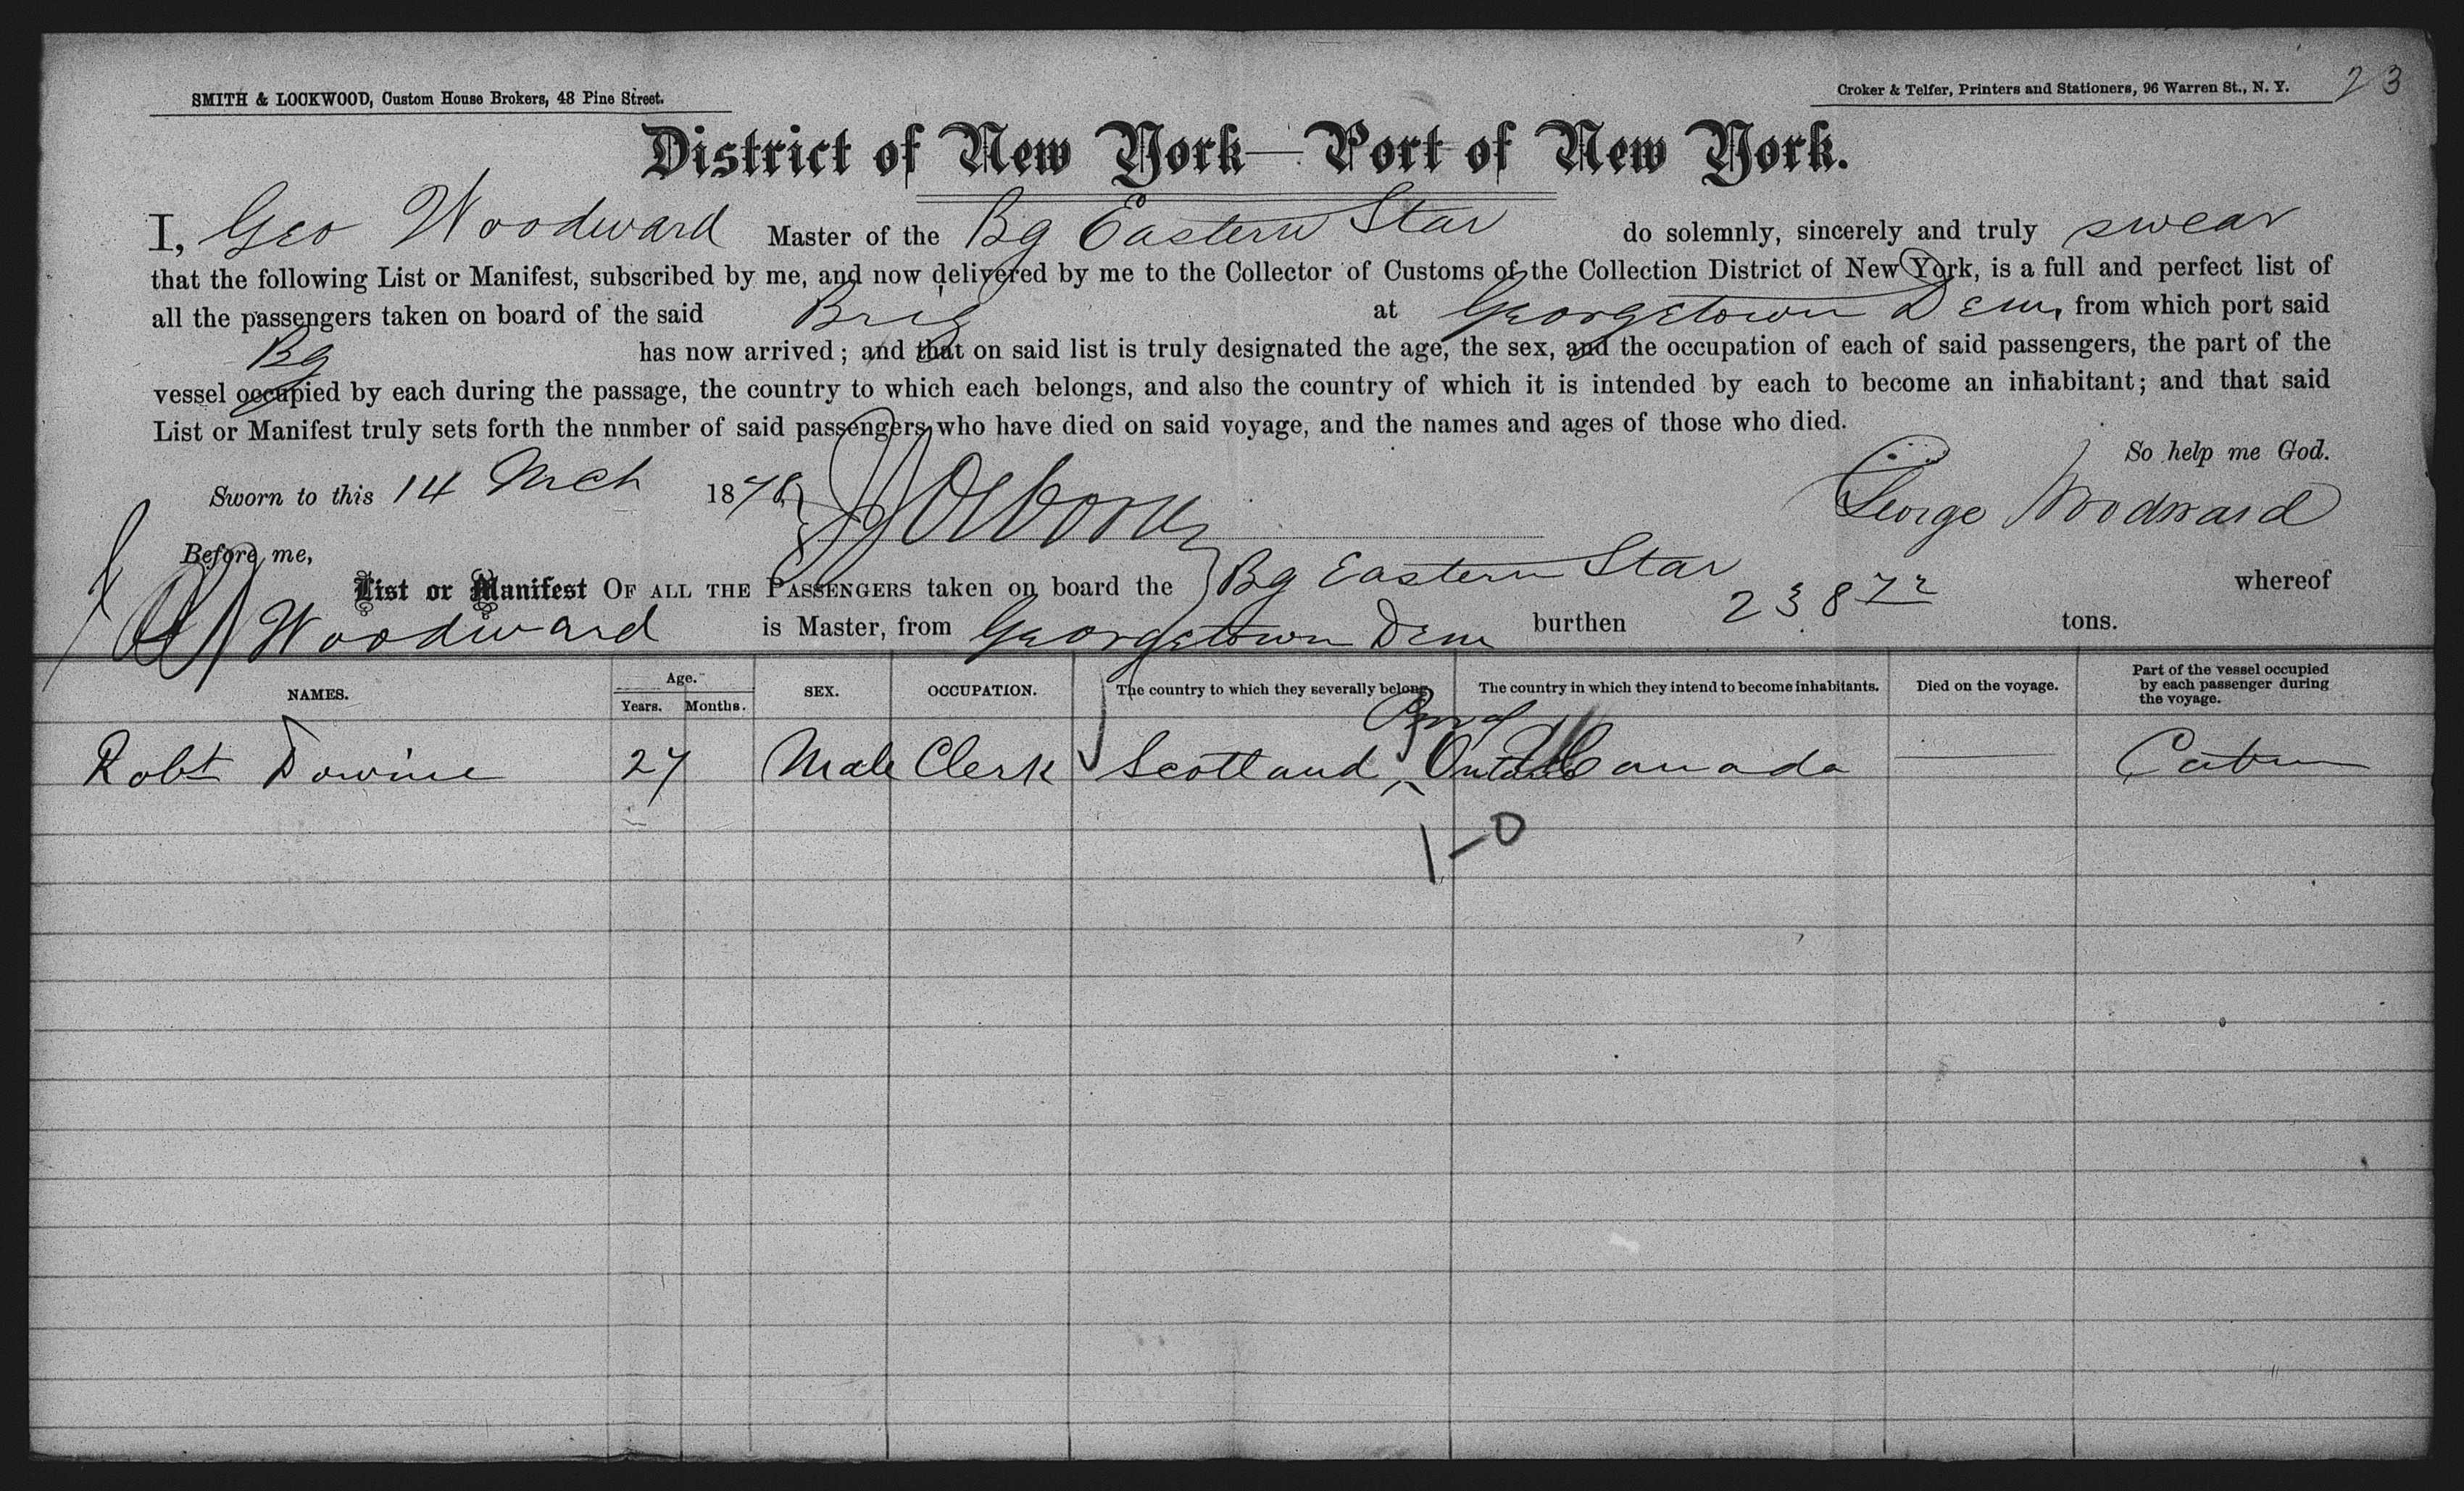 23
SMITH & LOCKWOOD, Custom House Brokers, 48 Pine Street.
Croker & Telfer, Printers and Stationers, 96 Warren St., N. Y.
District of New York—Port of New York.
I, Geo Woodward Master of the Bg Eastern Star do solemnly, sincerely and truly swear
that the following List or Manifest, subscribed by me, and now delivered by me to the Collector of Customs of the Collection District of New York, is a full and perfect list of
all the passengers taken on board of the said Brig at Georgetown Dem, from which port said
Bg has now arrived; and that on said list is truly designated the age, the sex, and the occupation of each of said passengers, the part of the
vessel occupied by each during the passage, the country to which each belongs, and also the country of which it is intended by each to become an inhabitant; and that said
List or Manifest truly sets forth the nnmber of said passengers who have died on said voyage, and the names and ages of those who died.
So help me God.
Sworn to this 14 Mch 1878 George Woodward
Before me,
List or Manifest OF ALL THE PASSENGERS taken on board the Bg Eastern Star whereof
Woodward is Master, from Georgetown Dem burthen 238 72 tons.
NAMES. Age. Years. Months. SEX. OCCUPATION. The country to which they severally belong. The country in which they intend to become inhabitants. Died on the voyage. Part of the vessel occupied by each passenger during the voyage.
Robt Downie 27 Male Clerk Scotland Canada — Cabin
1-0